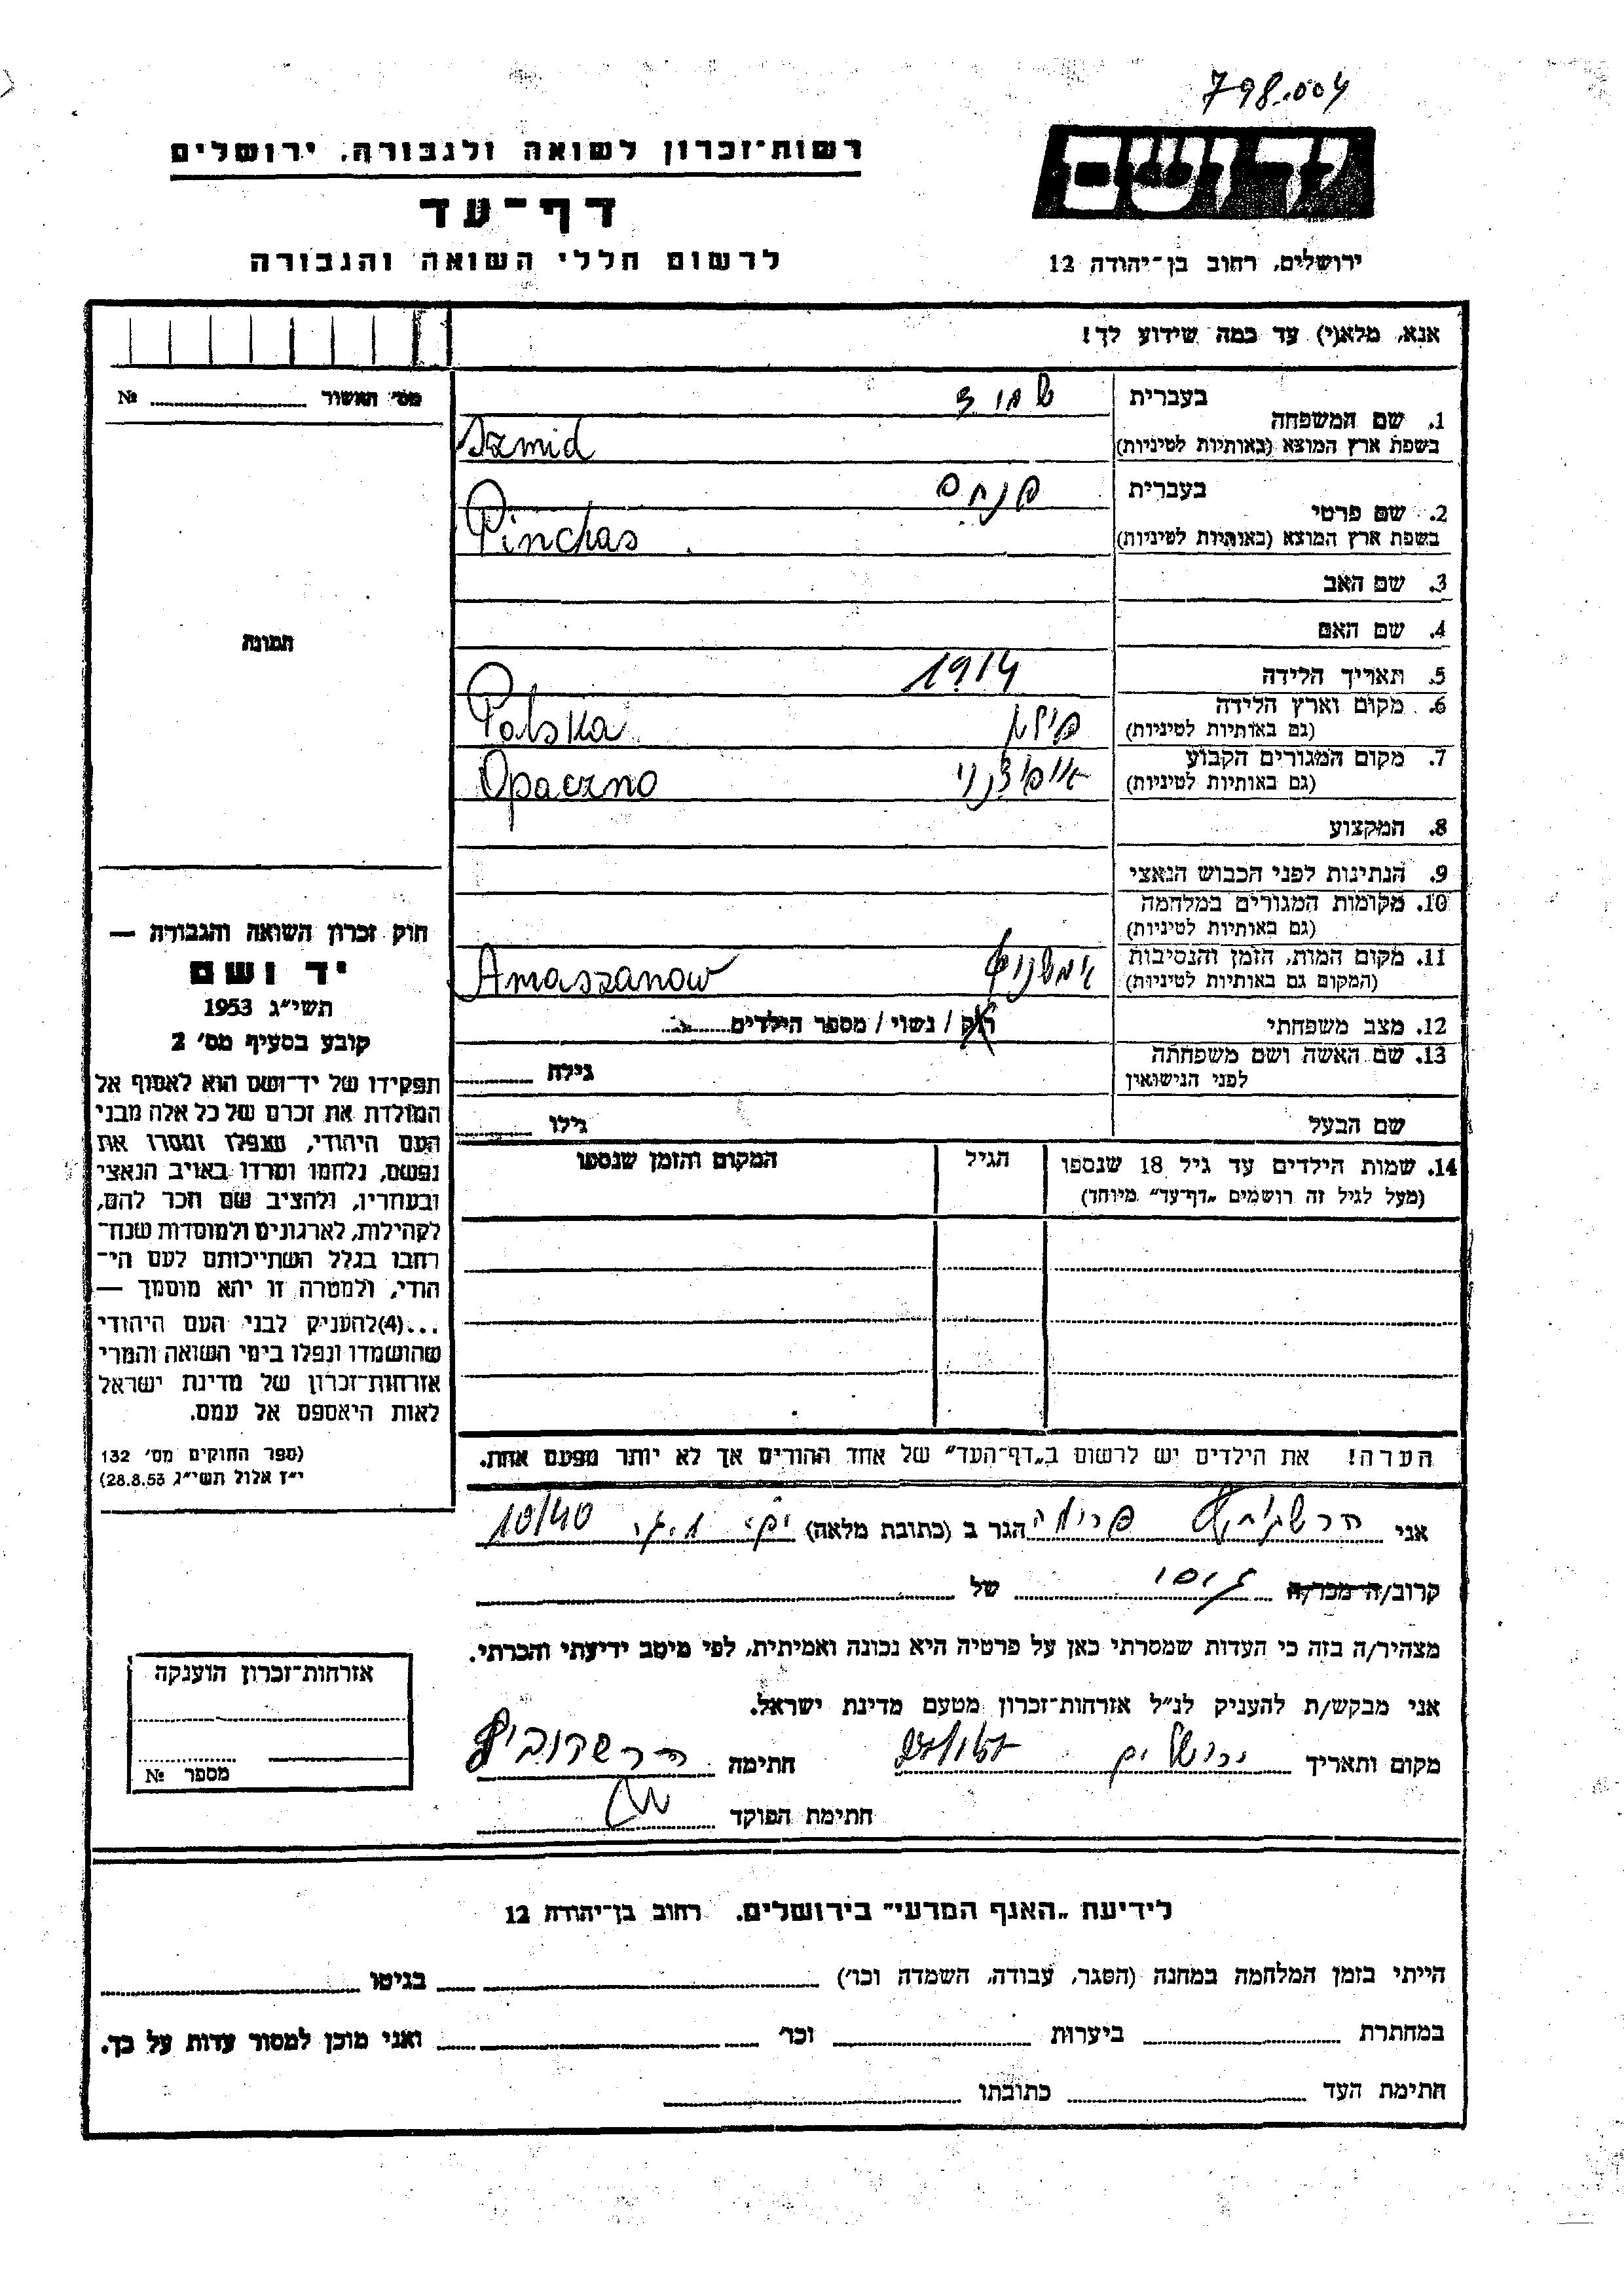 798.004
ידושם
רשות־זכרון לשואה ולגבורה, ירושלים
דף־עד
לרשום חללי השואה והגבורה
ירושלים, רחוב בן־יהודה 12
אנא, מלא(י) עד כמה שידוע לך!
מס' האשור № 
1. שם המשפחה בעברית שמיד
בשפת ארץ המוצא (באותיות לטיניות) Szmid
2. שם פרטי בעברית פנחס
בשפת ארץ המוצא (באותיות לטיניות) Pinchas
3. שם האב
4. שם האם
5. תאריך הלידה 1914
6. מקום וארץ הלידה
(גם באותיות לטיניות) פולין Polska
7. מקום המגורים הקבוע
(גם באותיות לטיניות) Opaczno
8. המקצוע
9. הנתינות לפני הכבוש הנאצי
10. מקומות המגורים במלחמה
(גם באותיות לטיניות)
11. מקום המות, הזמן והנסיבות
(המקום גם באותיות לטיניות) Amaszanow
12. מצב משפחתי רוק / נשוי / מספר הילדים
13. שם האשה ושם משפחתה
לפני הנישואין גילה
שם הבעל גילו
14. שמות הילדים עד גיל 18 שנספו הגיל המקום והזמן שנספו
(מעל לגיל זה רושמים „דף־עד" מיוחד)
הערה! את הילדים יש לרשום ב„דף־העד" של אחד ההורים אך לא יותר מפעם אחת.
תמונה
חוק זכרון השואה והגבורה —
יד ושם
תשי"ג 1953
קובע בסעיף מס' 2
תפקידו של יד־ושם הוא לאסוף אל
המולדת את זכרם של כל אלה מבני
העם היהודי, שנפלו ומסרו את
נפשם, נלחמו ומרדו באויב הנאצי
ובעוזריו, ולהציב שם וזכר להם,
לקהילות, לארגונים ולמוסדות שנח־
רבו בגלל השתייכותם לעם הי־
הודי, ולמטרה זו יהא מוסמך —
...(4)להעניק לבני העם היהודי
שהושמדו ונפלו בימי השואה והמרי
אזרחות־זכרון של מדינת ישראל
לאות היאספם אל עמם.
(ספר החוקים מס' 132
י"ז אלול תשי"ג 28.8.53)
אני הרשקוביץ הגר ב (כתובת מלאה) 10/40
קרוב/ה מכר/ה גיסו של
מצהיר/ה בזה כי העדות שמסרתי כאן על פרטיה היא נכונה ואמיתית, לפי מיטב ידיעתי והכרתי.
אני מבקש/ת להעניק לנ"ל אזרחות־זכרון מטעם מדינת ישראל.
מקום ותאריך ירושלים חתימה הרשקוביץ
חתימת הפוקד
אזרחות־זכרון הוענקה
מספר №
לידיעת „האגף המדעי" בירושלים. רחוב בן־יהודה 12
הייתי בזמן המלחמה במחנה (הסגר, עבודה, השמדה וכו') בגיטו
במחתרת ביערות וכו' ואני מוכן למסור עדות על כך.
חתימת העד כתובתו